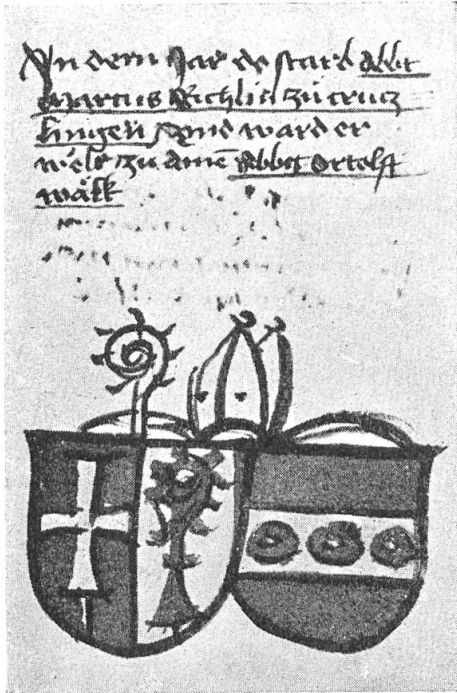 In dem Jar do starb Abbt
Marcus Richlin zu crucz
lingen vnd ward er
welt zu ainē Abbet ortolff
wäkk